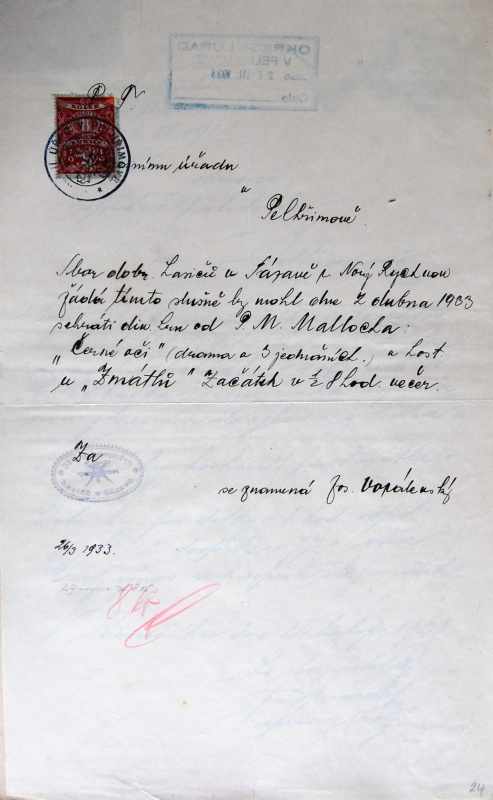 OKRESNÍ ÚŘAD
V PELHŘIMOVĚ
27. III. 1933
Číslo
P. T.
KOLEK
8
úřadu
v
Pelhřimově
Sbor dobr. hasičů v Sázavě p. Nový Rychnov
žádá tímto slušně by mohl dne 2 dubna 1933
sehráti div. hru od P. M. Mallocha:
„Černé oči" (drama o 3 jednáních.) v host.
u „Zmátlů" Začátek v ½ 8 hod. večer.
Za
se znamená Jos.
26/3 1933.
8 Kč
24